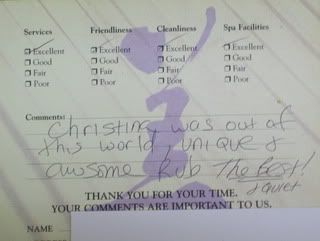 Services Friendliness Cleanliness Spa Facilities
Excellent Excellent Excellent Excellent
Good Good Good Good
Fair Fair Fair Fair
Poor Poor Poor Poor
Comments: Christina was out of
this world, unique &
awsome Rub The Best!
& Quiet
THANK YOU FOR YOUR TIME.
YOUR COMMENTS ARE IMPORTANT TO US.
NAME